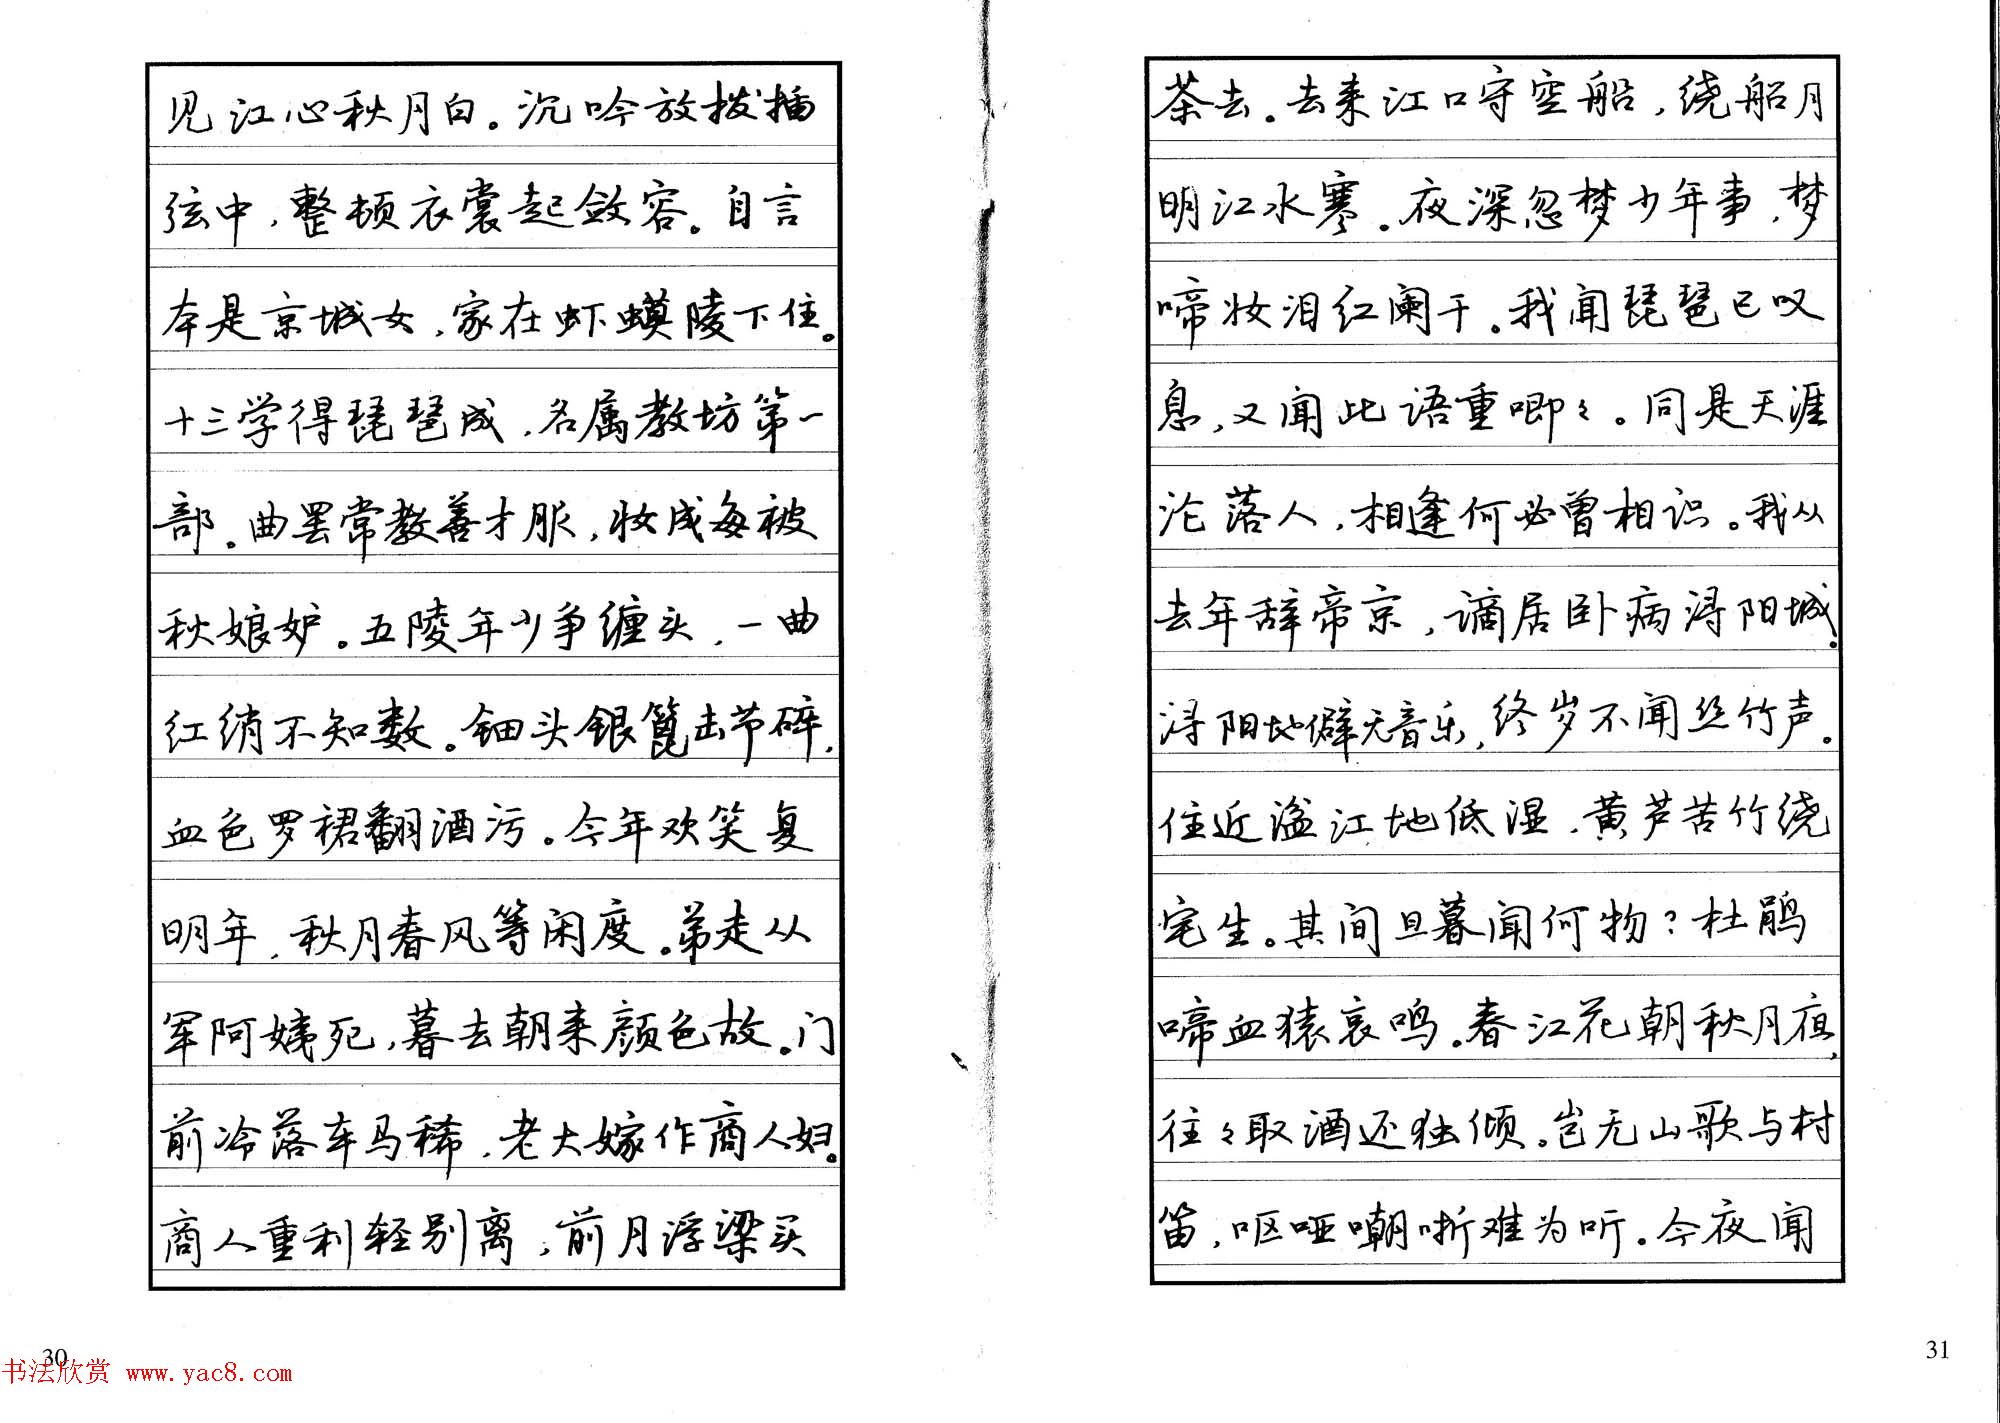 见江心秋月白。沉吟放拨插
弦中，整顿衣裳起敛容。自言
本是京城女，家在虾蟆陵下住。
十三学得琵琶成，名属教坊第一
部。曲罢常教善才服，妆成每被
秋娘妒。五陵年少争缠头，一曲
红绡不知数。钿头银篦击节碎，
血色罗裙翻酒污。今年欢笑复
明年，秋月春风等闲度。弟走从
军阿姨死，暮去朝来颜色故。门
前冷落车马稀，老大嫁作商人妇。
商人重利轻别离，前月浮梁买
30
书法欣赏 www.yac8.com
茶去。去来江口守空船，绕船月
明江水寒。夜深忽梦少年事，梦
啼妆泪红阑干。我闻琵琶已叹
息，又闻此语重唧々。同是天涯
沦落人，相逢何必曾相识。我从
去年辞帝京，谪居卧病浔阳城。
浔阳地僻无音乐，终岁不闻丝竹声。
住近湓江地低湿，黄芦苦竹绕
宅生。其间旦暮闻何物？杜鹃
啼血猿哀鸣。春江花朝秋月夜，
往々取酒还独倾。岂无山歌与村
笛，呕哑嘲哳难为听。今夜闻
31